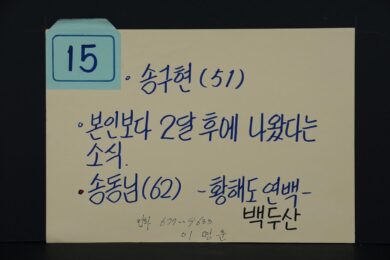 15
• 송구현(51)
• 본인보다 2달 후에 나왔다는
소식.
• 송동님(62) -황해도 연백-
백두산